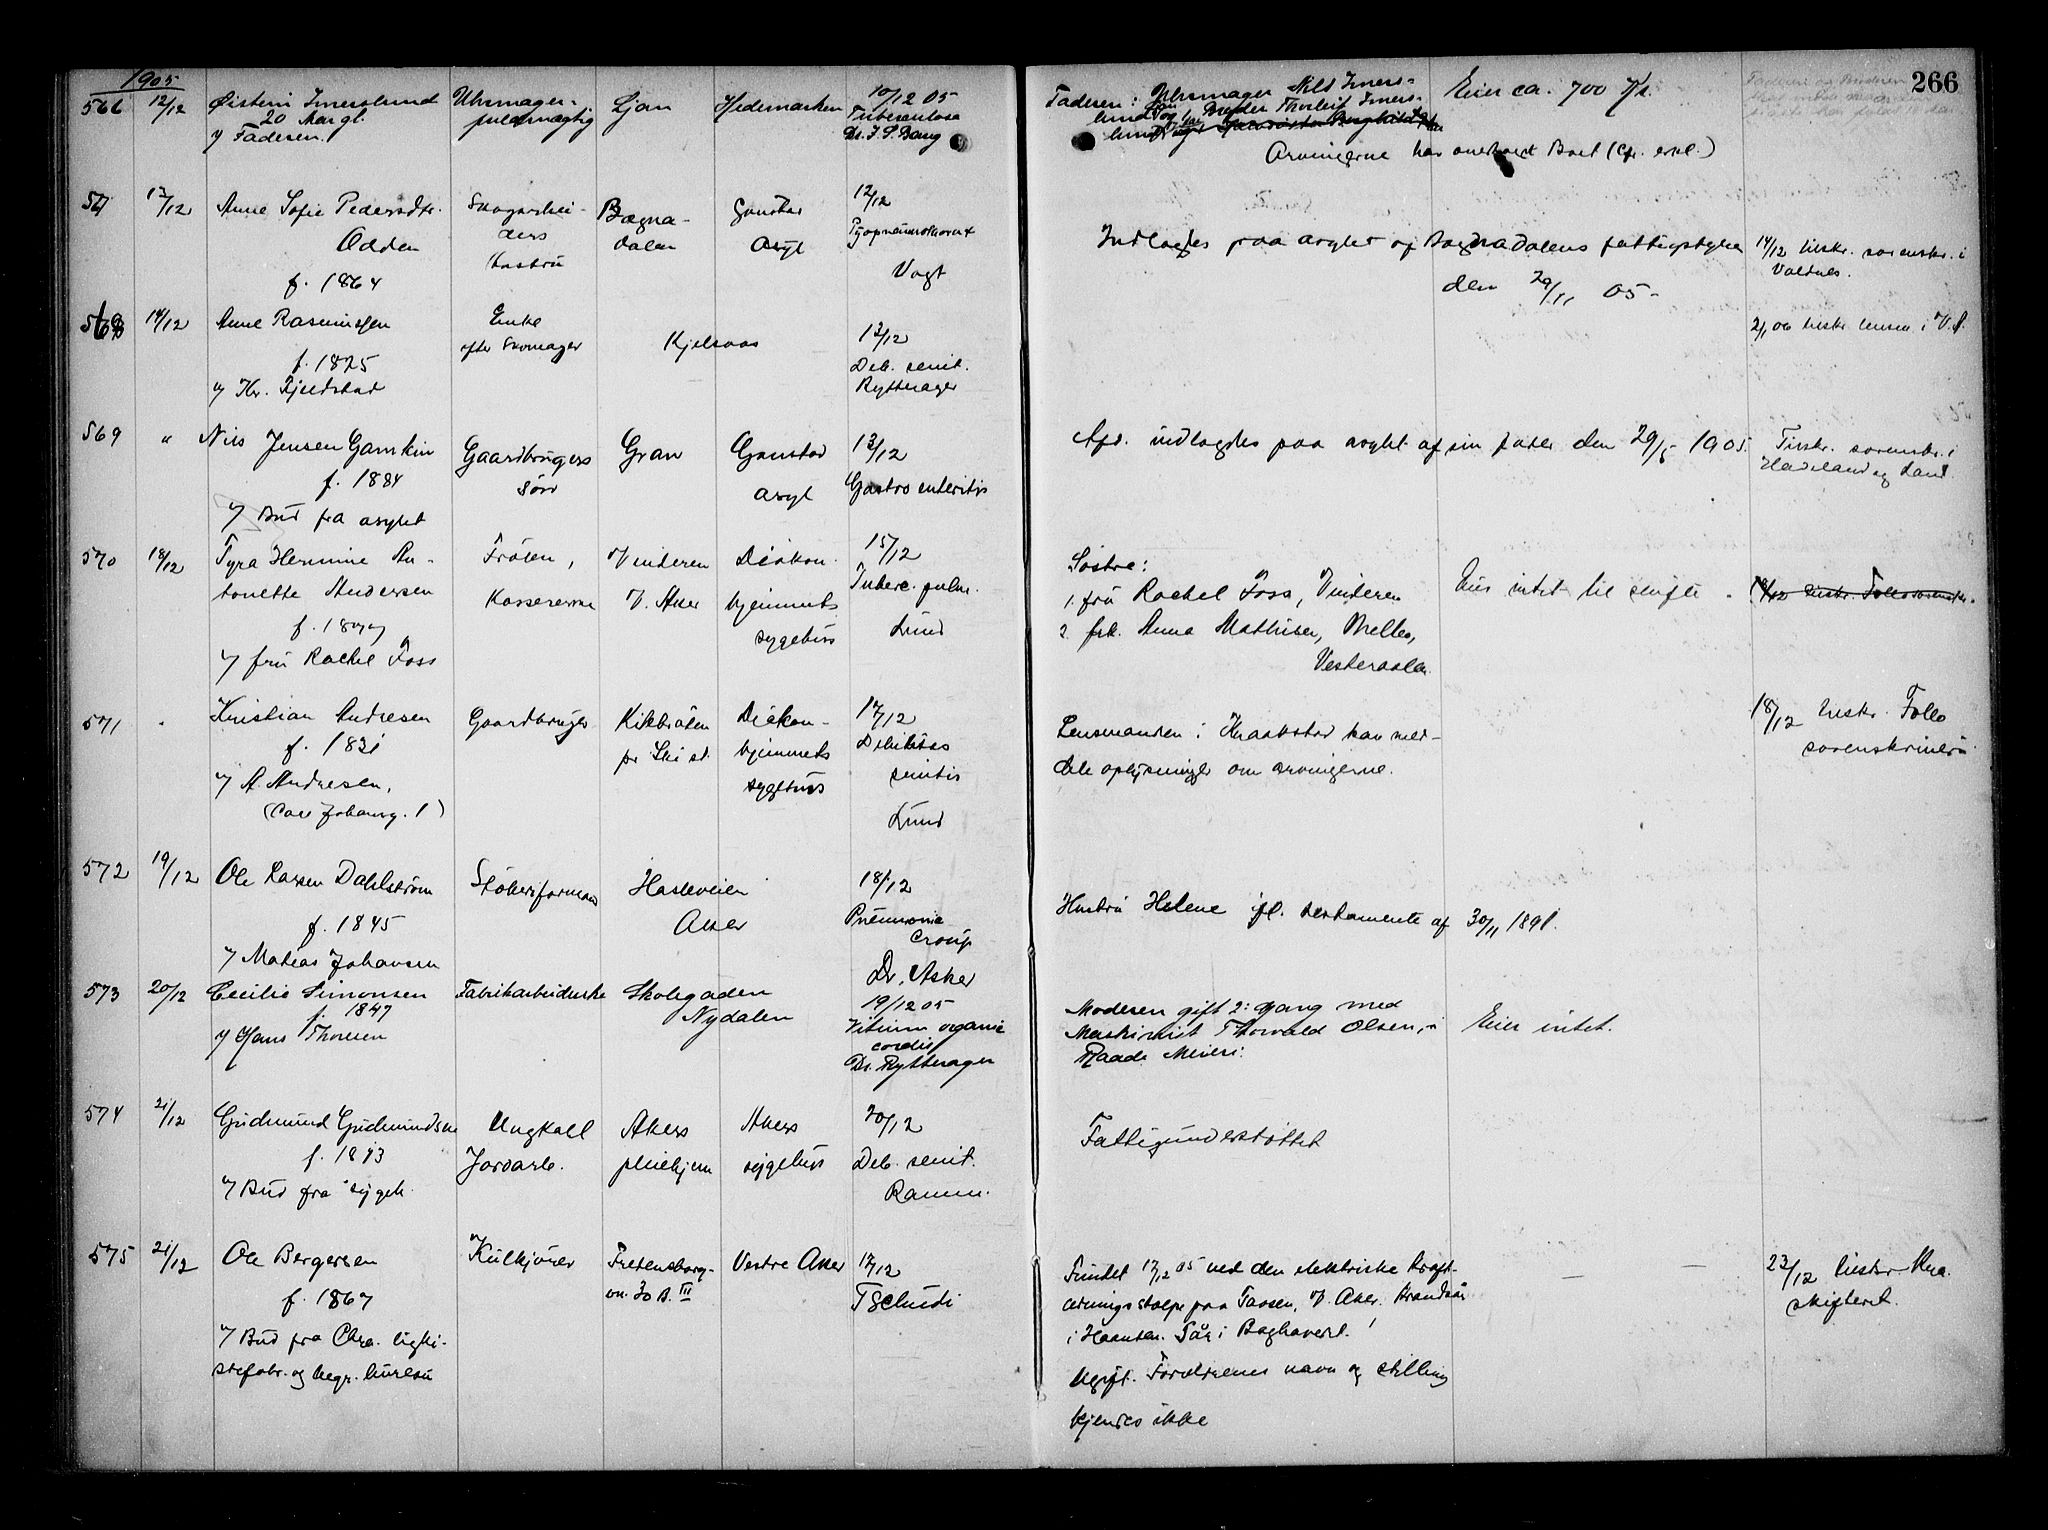 266
1905
566 12/12 Øistein Imerslund Uhrmager- Ljan Hedemarken 10/12 05
20 Aar gl. fuldmægtig Tuberculose
v/ Faderen. Dr. I. S. Bang
Faderen: Uhrmager Nils Imers-
lund og Broder Thorleif Imers-
lund
Eier ca. 700 Kr.
Arvingerne har overtaget Boet (cfr. erkl.)
567 13/12 Anne Sofie Pedersdtr. Skogarbei- Bægna- Gaustad 12/12
Odden ders dalen Asyl Pyopneumothorax
f. 1864 hustru Vogt
Indlagdes paa asylet af Bægnadalens fattigstyre
den 29/11 05-
14/12 tilskr. sorenskr. i
Valdres.
568 14/12 Anne Rasmussen Enke Kjelsaas 13/12
f. 1825 efter Skomager Deb. senil.
v/ Kr. Fjeldstad Rytterager
2/1 06 tilskr. lensm. i V. A.
569 " Nils Jensen Gamkin Gaardbrugers Gran Gaustad 13/12
f. 1884 søn asyl Gastro enteritis
v/ Bud fra asylet
Afd. indlagdes paa asylet af sin fader den 29/5 1905.
Tilskr. sorenskr. i
Hadeland og Land
570 18/12 Tyra Hermine An- Frøken, Vinderen Diakon. 15/12
tonette Andersen Kassererske V. Aker hjemmets Tuberc. pulm.
f. 1877 sygehus Lund
v/ fru Rachel Foss
Søstre:
1. fru Rachel Foss, Vinderen
2. frk. Anna Mathisen, Melbo,
Vesteraalen.
Eier intet til skifte.
18/12 tilskr. Follo sorenskr.
571 Kristian Andresen Gaardbruger Kikbråten Diakon- 17/12
f. 1821 pr Ski st. hjemmets Debilitas
v/ A. Andresen, sygehus senilis
(Carl Johansg. 1) Lund
Lensmanden i Kraakstad kan med-
dele oplysninger om arvingerne.
18/12 tilskr. Follo
sorenskriveri
572 19/12 Ole Larsen Dahlstrøm Støberiformand Hasleveien 18/12
f. 1845 Aker Pneumonia
v/ Matias Johansen Croup
Dr. Asker
Hustru Helene ifl. testamente af 30/11 1891.
573 20/12 Cecilie Simonsen Fabrikarbeiderske Skolegaden 19/12 05
f. 1847 Nydalen Vitium organic
v/ Hans Thoresen cordis
Dr. Rytterager
Moderen gift 2: gang med
Maskinist Thorvald Olsen, i
Raade Meieri.
Eier intet.
574 21/12 Gudmund Gudmundsen Ungkarl Akers Akers 20/12
f. 1813 Jordarb. pleiehjem sygehus Deb. senil.
v/ Bud fra sygeh. Ramm.
Fattigunderstøttet
575 21/12 Ole Bergersen Kulkjører Fredensborg- Vestre Aker 17/12
f. 1867 vn. 30 B. III Tschudi
v/ Bud fra Chra. ligki-
stefabr. og begr. bureau
Fundet 17/12 05 ved den elektriske kraft-
ledningsstolpe paa Taasen, V. Aker. Brandsår
i Haanden. Sår i Baghovedet.
Ugift. Forældrenes navn og stilling
kjendes ikke
— —
23/12 tilskr. Kra.
skifteret.